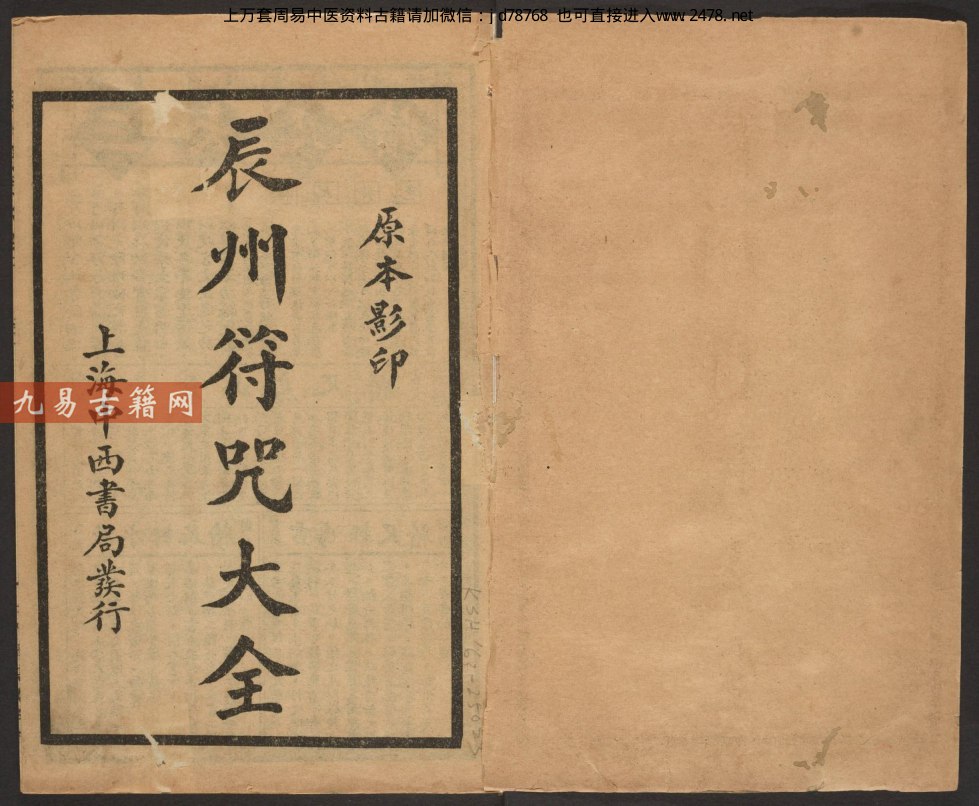 上万套周易中医资料古籍请加微信：jyd78768 也可直接进入www.2478.net
原本影印
辰州符咒大全
上海中西書局發行
九易古籍网